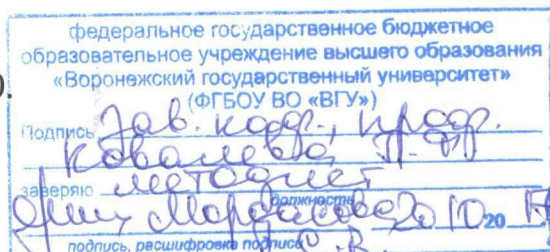 федеральное государственное бюджетное
образовательное учреждение высшего образования
«Воронежский государственный университет»
(ФГБОУ ВО «ВГУ»)
Подпись Зав. каф., проф.
Ковалева
заверяю методист
должность
Мордасова 20 10 20 17
подпись, расшифровка подписи